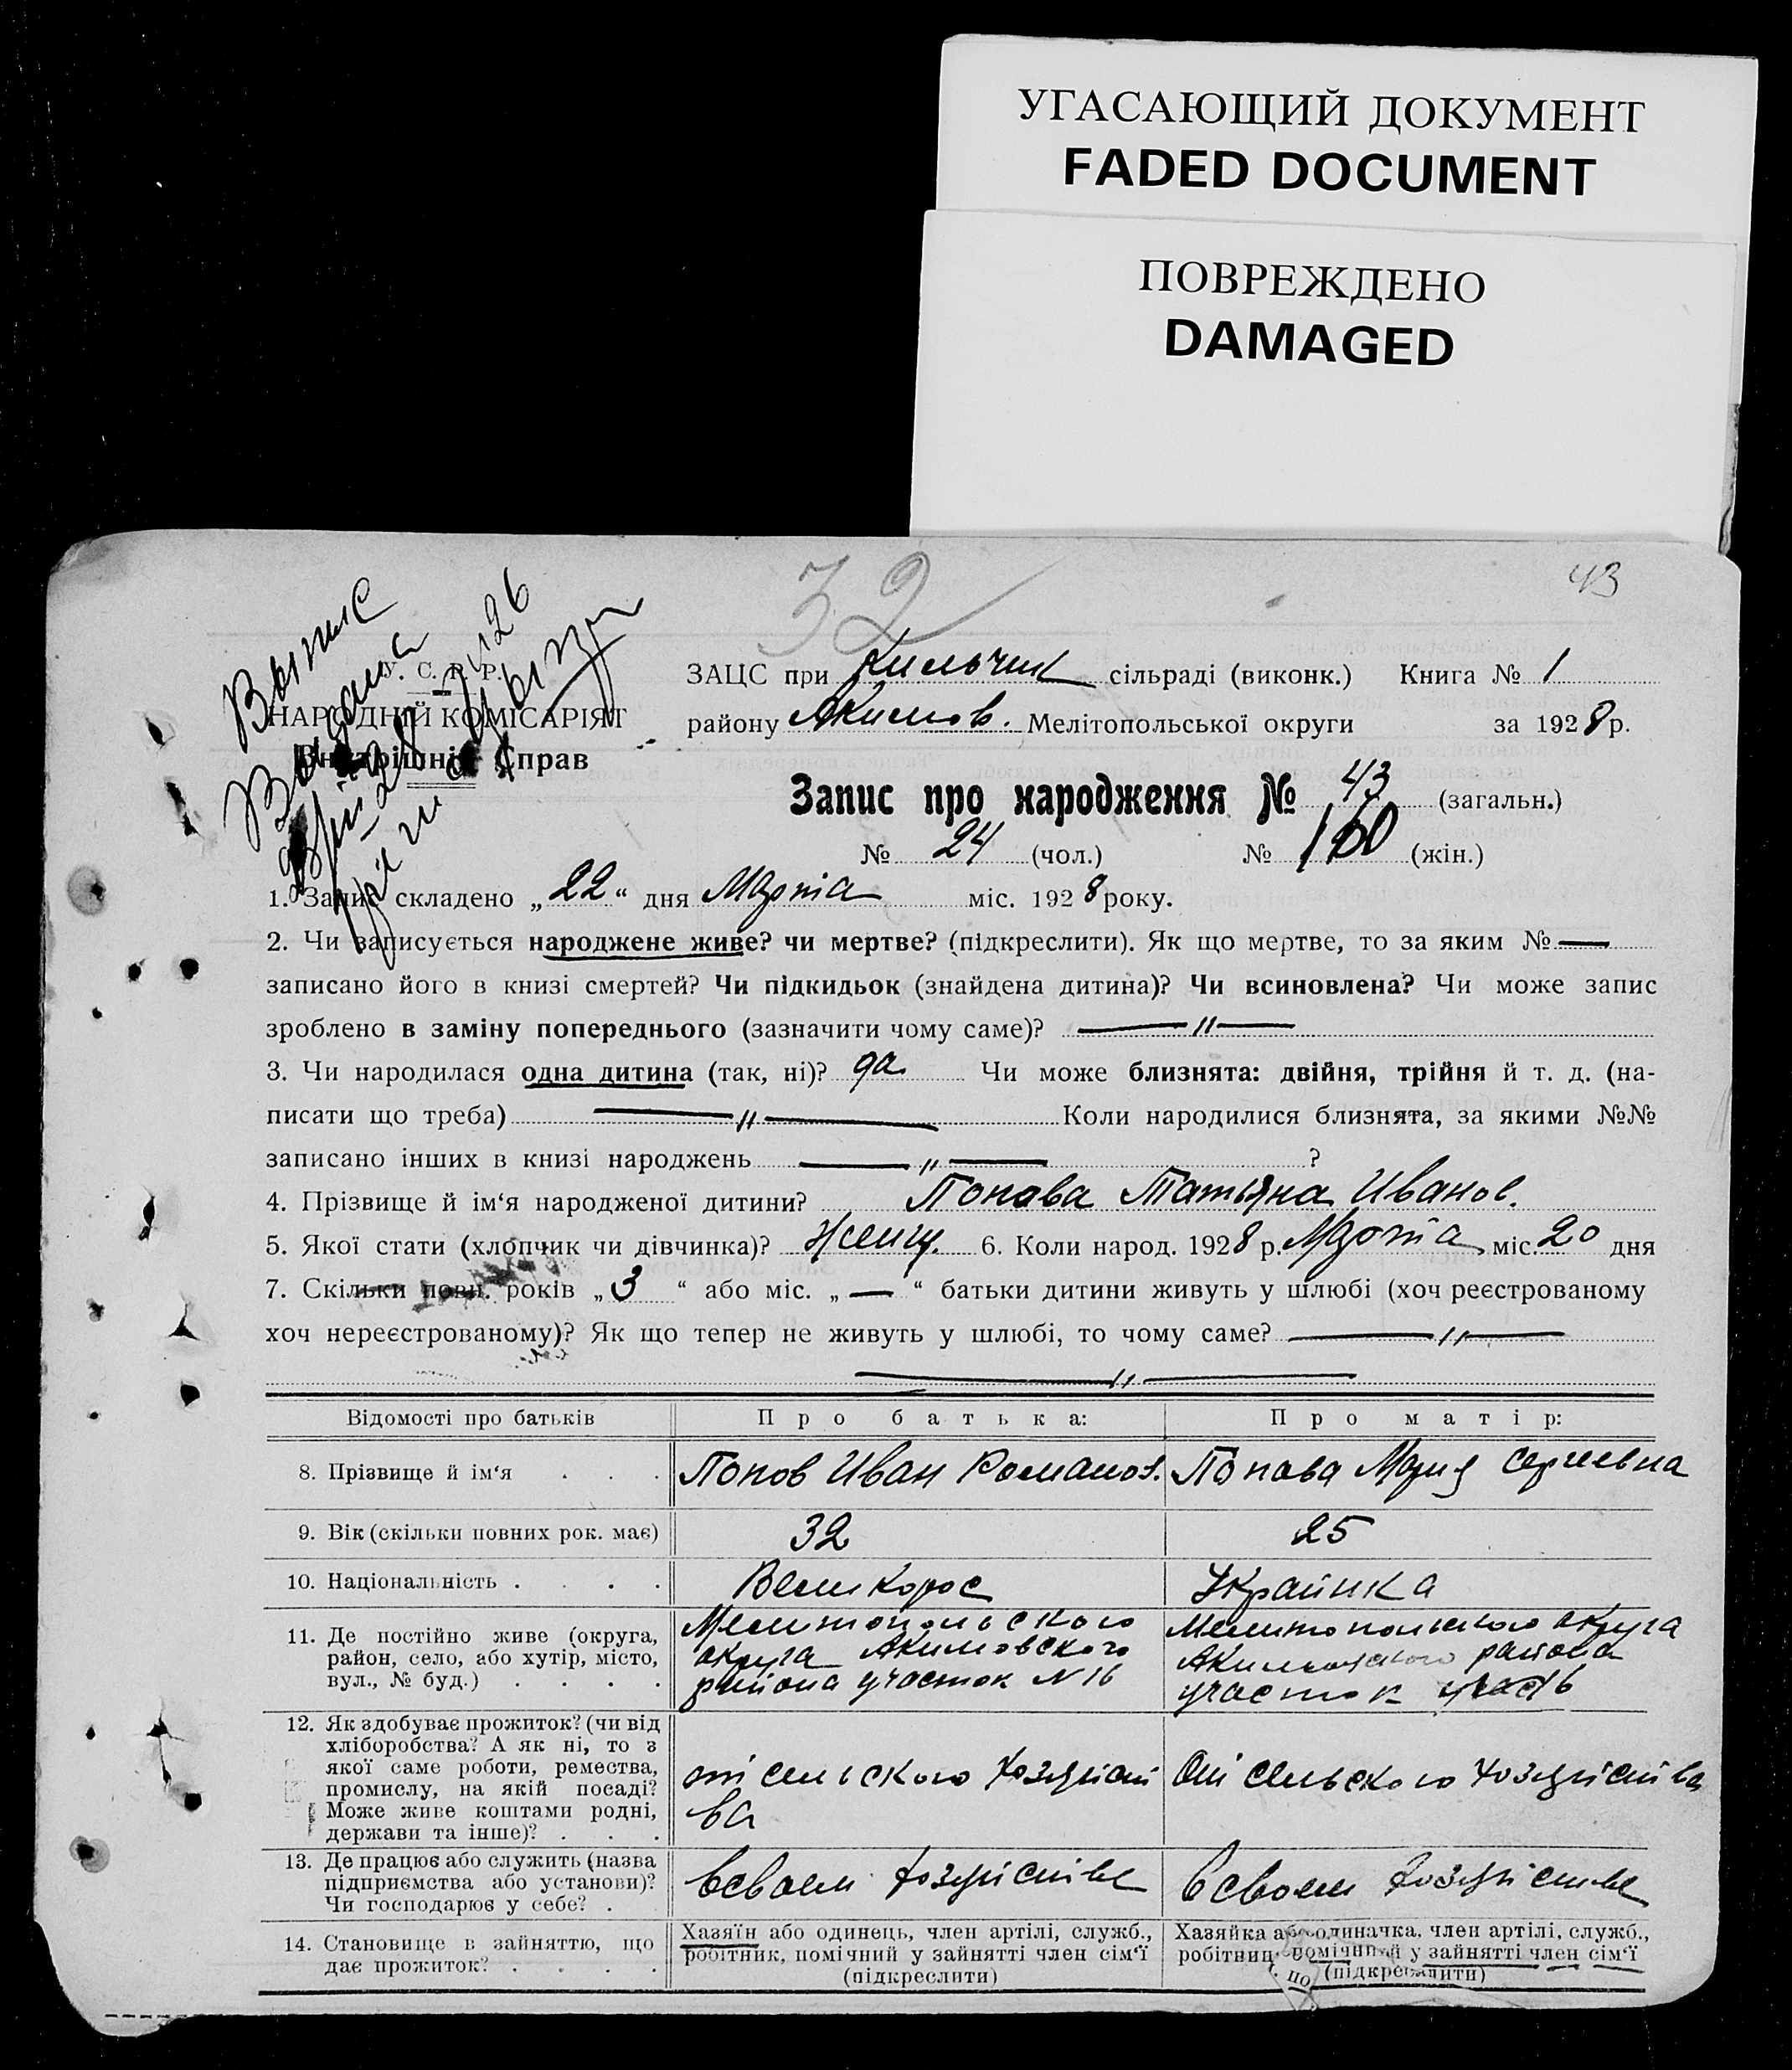 УГАСАЮЩИЙ ДОКУМЕНТ
FADED DOCUMENT
ПОВРЕЖДЕНО
DAMAGED
32
43
Выпис
Выдана
У. С. Р. Р.
НАРОДНІЙ КОМІСАРІЯТ
Внутрішніх Справ
ЗАЦС при Кильчик сільраді (виконк.) Книга № 1
району Акимов. Мелітопольської округи за 1928 р.
Запис про народження № 43 (загальн.)
№ 24 (чол.) № (жін.)
1. Запис складено „22“ дня Марта міс. 1928 року.
2. Чи записується народжене живе? чи мертве? (підкреслити). Як що мертве, то за яким № —
записано його в книзі смертей? Чи підкидьок (знайдена дитина)? Чи всиновлена? Чи може запис
зроблено в заміну попереднього (зазначити чому саме)? —〃 —
3. Чи народилася одна дитина (так, ні)? да Чи може близнята: двійня, трійня й т. д. (на-
писати що треба) — 〃 — Коли народилися близнята, за якими №№
записано інших в книзі народжень — 〃 — ?
4. Прізвище й ім‘я народженої дитини? Попова Татьяна Иванов.
5. Якої стати (хлопчик чи дівчинка)? Женщ. 6. Коли народ. 1928 р. Марта міс. 20 дня
7. Скільки повн. років „3“ або міс. „—“ батьки дитини живуть у шлюбі (хоч реєстрованому
хоч нереєстрованому)? Як що тепер не живуть у шлюбі, то чому саме? — 〃 —
— 〃 —
Відомості про батьків Про батька: Про матір:
8. Прізвище й ім‘я . . . Попов Иван Романов. Попова Мария Сергиевна
9. Вік (скільки повних рок. має) 32 25
10. Національність . . . . Великорос Украинка
11. Де постійно живе (округа, Мелитопольского Мелитопольского округа
район, село, або хутір, місто, округа Акимовского Акимовского района
вул., № буд.) . . . . района участок N 16 участок 16
12. Як здобуває прожиток? (чи від
хліборобства? А як ні, то з
якої саме роботи, ремества,
промислу, на якій посаді? от сельского хозяйст От сельского хозяйства
Може живе коштами родні, ва
держави та інше)? . . .
13. Де працює або служить (назва
підприємства або установи)? В своем хозяйстве В своем хозяйстве
Чи господарює у себе? .
14. Становище в зайняттю, що Хазяїн або одинець, член артілі, служб., Хазяйка або одиначка, член артілі, служб.,
дає прожиток? . . . . робітник, помічний у зайнятті член сім‘ї робітниц помічний у зайнятті член сім‘ї
(підкреслити) (підкреслити)